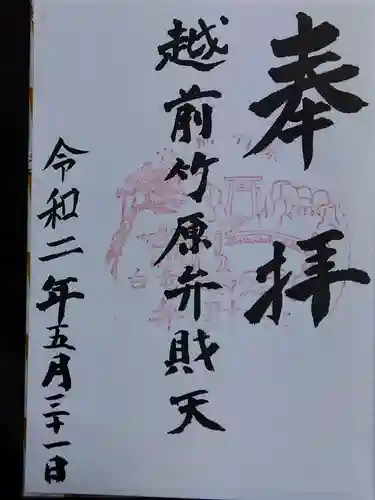 奉拝
越前竹原弁財天
令和二年五月三十一日